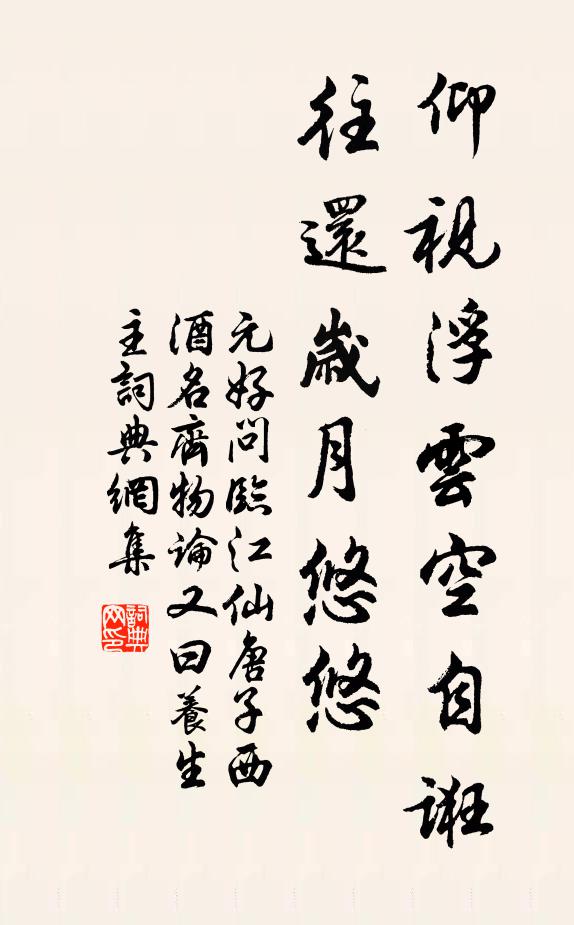 仰視浮雲空自誑
往還歲月悠悠
元好問臨江仙唐子西
酒名齊物論又曰養生
主詞典網集
詞典
网印